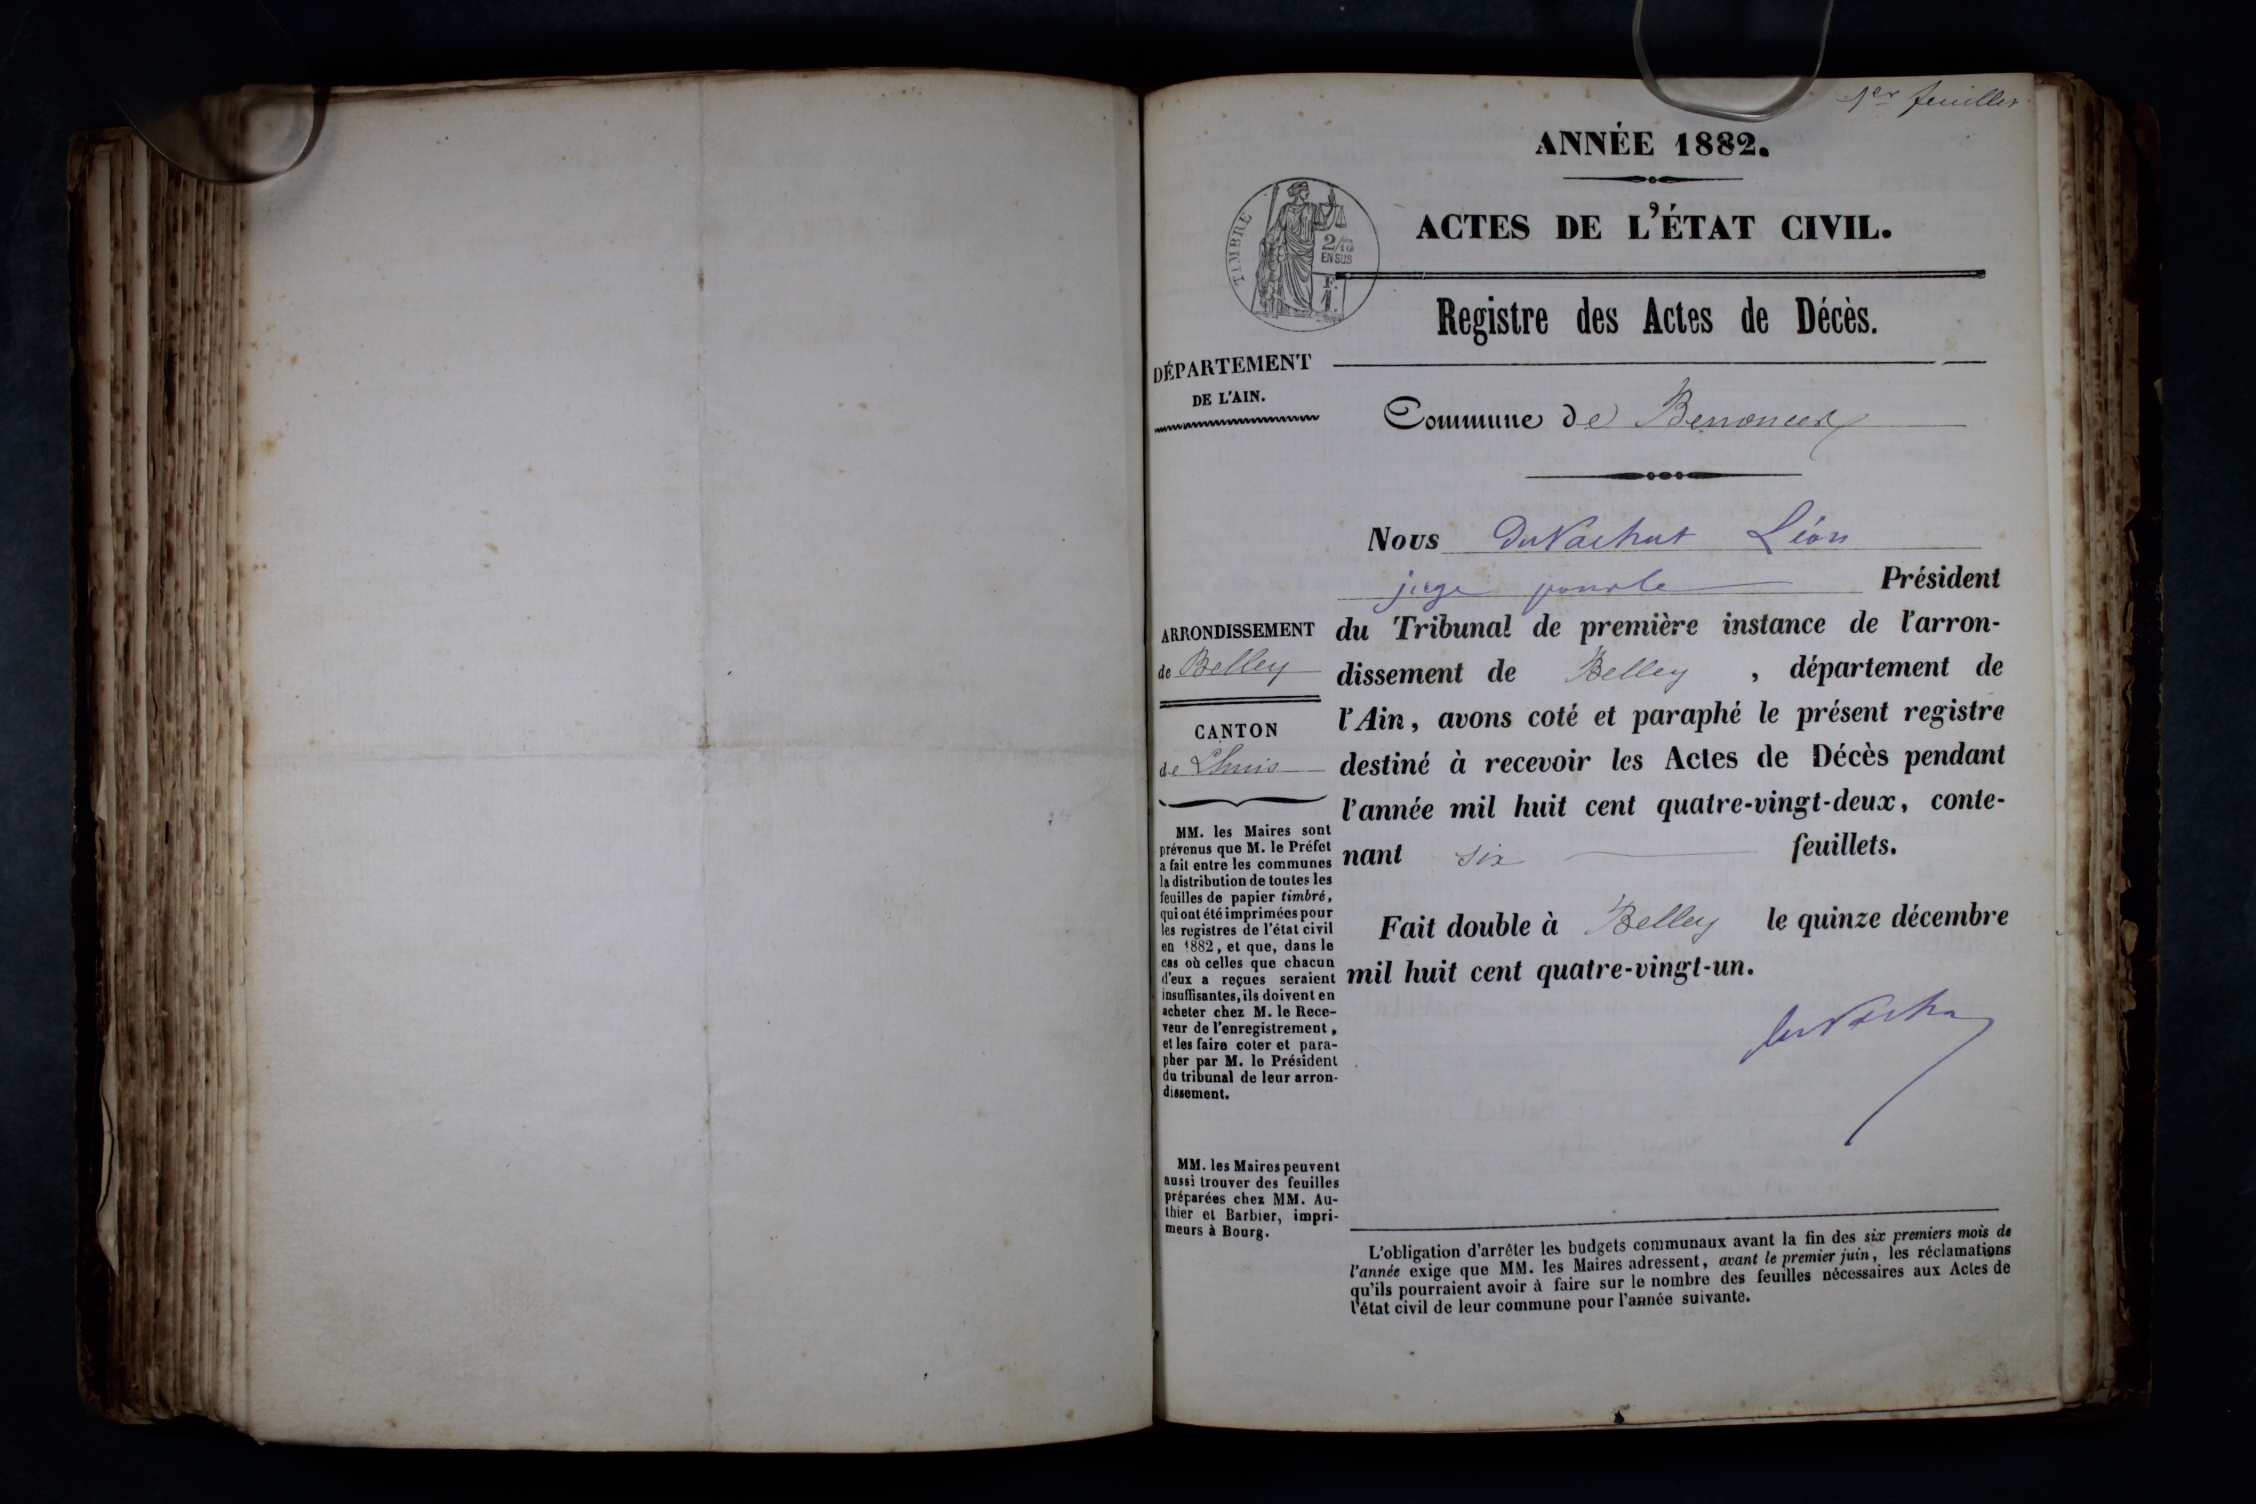 1er feuillet
ANNÉE 1882.
ACTES DE L'ÉTAT CIVIL.
TIMBRE
2/10
EN SUS
F.
1.
Registre des Actes de Décès.
DÉPARTEMENT
DE L'AIN.
Commune de Benonces
Nous Duvachat Léon
juge pour le Président
du Tribunal de première instance de l'arron-
dissement de Belley, département de
l'Ain, avons coté et paraphé le présent registre
destiné à recevoir les Actes de Décès pendant
l'année mil huit cent quatre-vingt-deux, conte-
nant six feuillets.
Fait double à Belley le quinze décembre
mil huit cent quatre-vingt-un.
ARRONDISSEMENT
de Belley
CANTON
de Lhuis
MM. les Maires sont
prévenus que M. le Préfet
a fait entre les communes
la distribution de toutes les
feuilles de papier timbré,
qui ont été imprimées pour
les registres de l'état civil
en 1882, et que, dans le
cas où celles que chacun
d'eux a reçues seraient
insuffisantes, ils doivent en
acheter chez M. le Rece-
veur de l'enregistrement,
et les faire coter et para-
pher par M. le Président
du tribunal de leur arron-
dissement.
MM. les Maires peuvent
aussi trouver des feuilles
préparées chez MM. Au-
thier et Barbier, impri-
meurs à Bourg.
L'obligation d'arrêter les budgets communaux avant la fin des six premiers mois de
l'année exige que MM. les Maires adressent, avant le premier juin, les réclamations
qu'ils pourraient avoir à faire sur le nombre des feuilles nécessaires aux Actes de
l'état civil de leur commune pour l'année suivante.